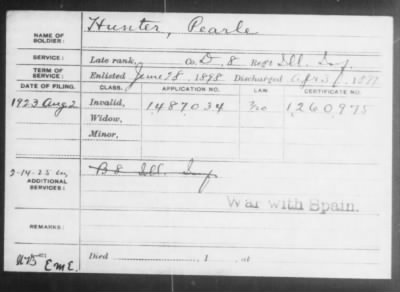 NAME OF SOLDIER: Hunter, Pearle
SERVICE: Late rank, Co. D, 8 Reg't Ill. Inf.
TERM OF SERVICE: Enlisted June 28, 1898 Discharged Apr 3, 1899
DATE OF FILING. CLASS. APPLICATION NO. LAW CERTIFICATE NO.
1923 Aug 2 Invalid, 1487034 1260975
Widow,
Minor,
2-14-25
ADDITIONAL SERVICES: Ill. Inf
War with Spain.
REMARKS:
EME. Died , 1 , at